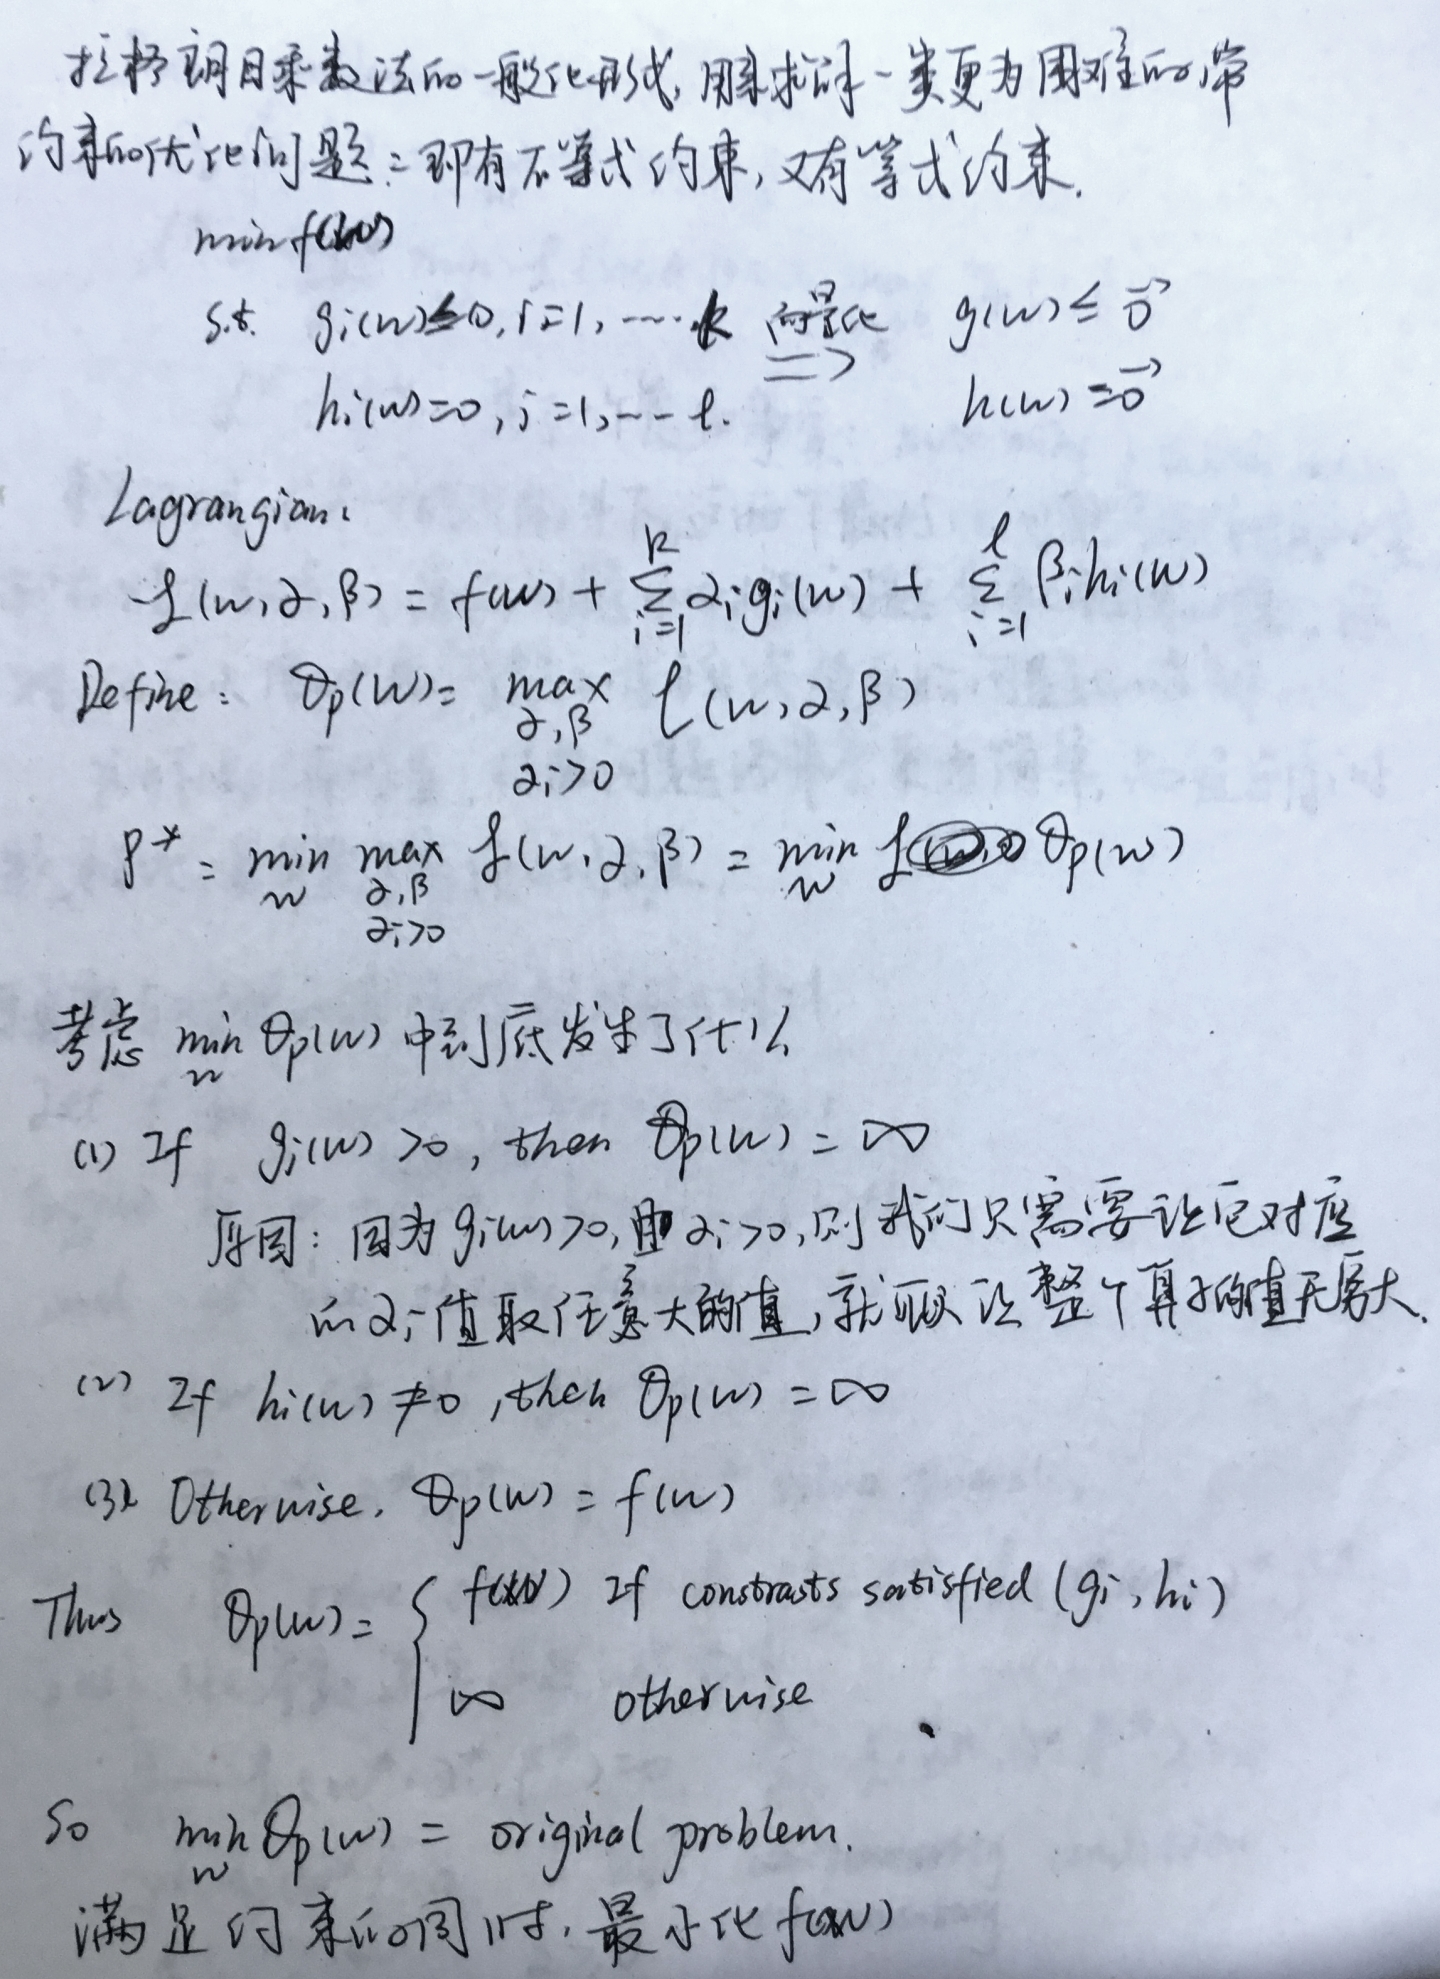 拉格朗日乘数法的一般化形式,用来求解一类更为困难的带
约束的优化问题:即有不等式约束,又有等式约束.
min f(w)
s.t. gi(w)≤0, i=1, ---- k 向量化 => g(w) ≤ 0⃗
hi(w)=0, i=1, --- l. h(w) = 0⃗
Lagrangian:
L(w,α,β) = f(w) + Σ_{i=1}^{k} αi gi(w) + Σ_{i=1}^{l} βi hi(w)
Define: θp(w) = max_{α,β αi>0} L(w,α,β)
p* = min_w max_{α,β αi>0} L(w,α,β) = min_w θp(w)
考虑 min_w θp(w) 中到底发生了什么
(1) If gi(w) >0, then θp(w) = ∞
原因: 因为 gi(w)>0, 且 αi>0, 则我们只需要让它对应
的 αi 值取任意大的值, 就可以让整个算子的值无穷大.
(2) If hi(w) ≠0, then θp(w) = ∞
(3) Otherwise. θp(w) = f(w)
Thus θp(w) = { f(w) If constrasts satisfied (gi, hi)
∞ otherwise
So min_w θp(w) = original problem.
满足约束的同时, 最小化 f(w)